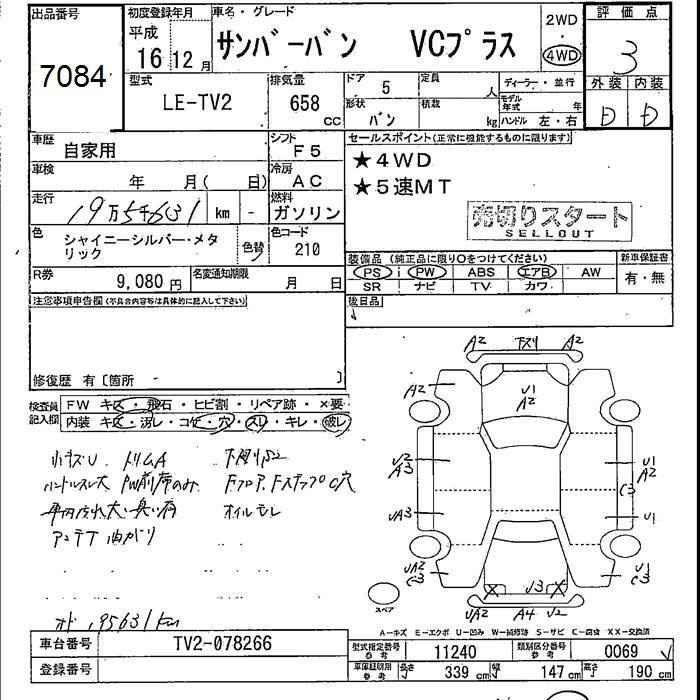 出品番号 初度登録年月 車名・グレード 評価点
7084
平成 16 12月
サンバーバン VCプラス
2WD
・
4WD
3
型式 排気量 ドア 5 定員 人 ディーラー・並行 外装 内装
LE-TV2 658 CC 形状 バン 積載 kg モデル年式 年 D D
ハンドル 左・右
車歴 自家用 シフト F5 セールスポイント(正常に機能するものに限ります)
車検 年 月( 日) 冷房 AC ★4WD
★5速MT
走行 19万5千631 km - 燃料 ガソリン
売切りスタート
SELLOUT
色 シャイニーシルバー・メタリック 色替 色コード 210
装備品 (純正品に限り○をつけてください) 新車保証書
PS PW ABS エアB AW 有・無
SR ナビ TV カワ
R券 9,080円 名変通知期限 月 日
後日品
注意事項申告欄(不具合内容等は具体的に記入して下さい)
修復歴 有〔箇所 〕
検査員記入欄 FW キズ・飛石・ヒビ割・リペア跡・×要
内装 キズ・汚レ・コゲ・穴・スレ・キレ・破レ
小キズU ドリムA 下廻りS2
ハンドルスレ大 PW前席のみ
オイルモレ
アンテナ曲がり
オド 195631km
A2 下スリ A2
A2 U1 A2
U2 A3 U1 A2
C3
UA3 U1
UA2 C3 U3 U1 C3
UA2 A4 U2
スペア
A-キズ E-エクボ U-凹み W-補修跡 S-サビ C-腐食 XX-交換済
車台番号 TV2-078266
登録番号
型式指定番号 参考 11240 類別区分番号 参考 0069
車庫証明用 参考 長さ 339cm 幅 147cm 高さ 190cm